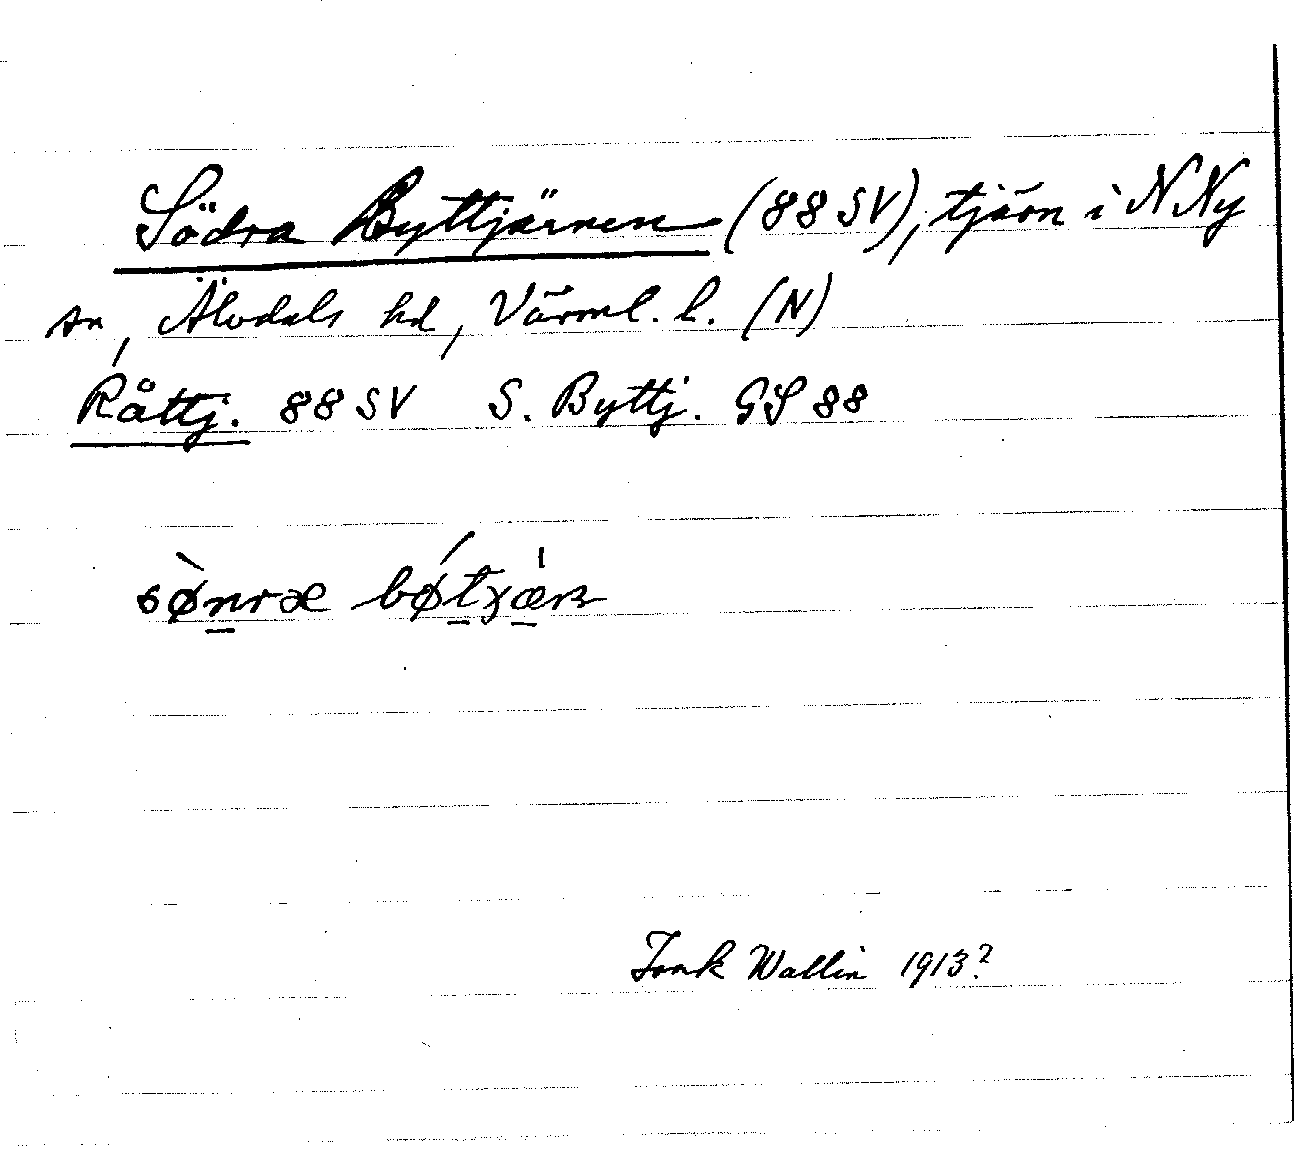 Södra Byttjärnen (88 SV), tjärn i N Ny
sn, Älvdals hd, Värml. l. (N)
Råttj. 88 SV S. Byttj. GS 88
sø̀nræ bǿtjæ̍rn
Wallin 1913?